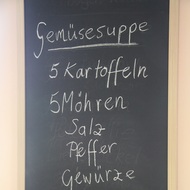 Gemüsesuppe
5 Kartoffeln
5 Möhren
Salz
Pfeffer
Gewürze